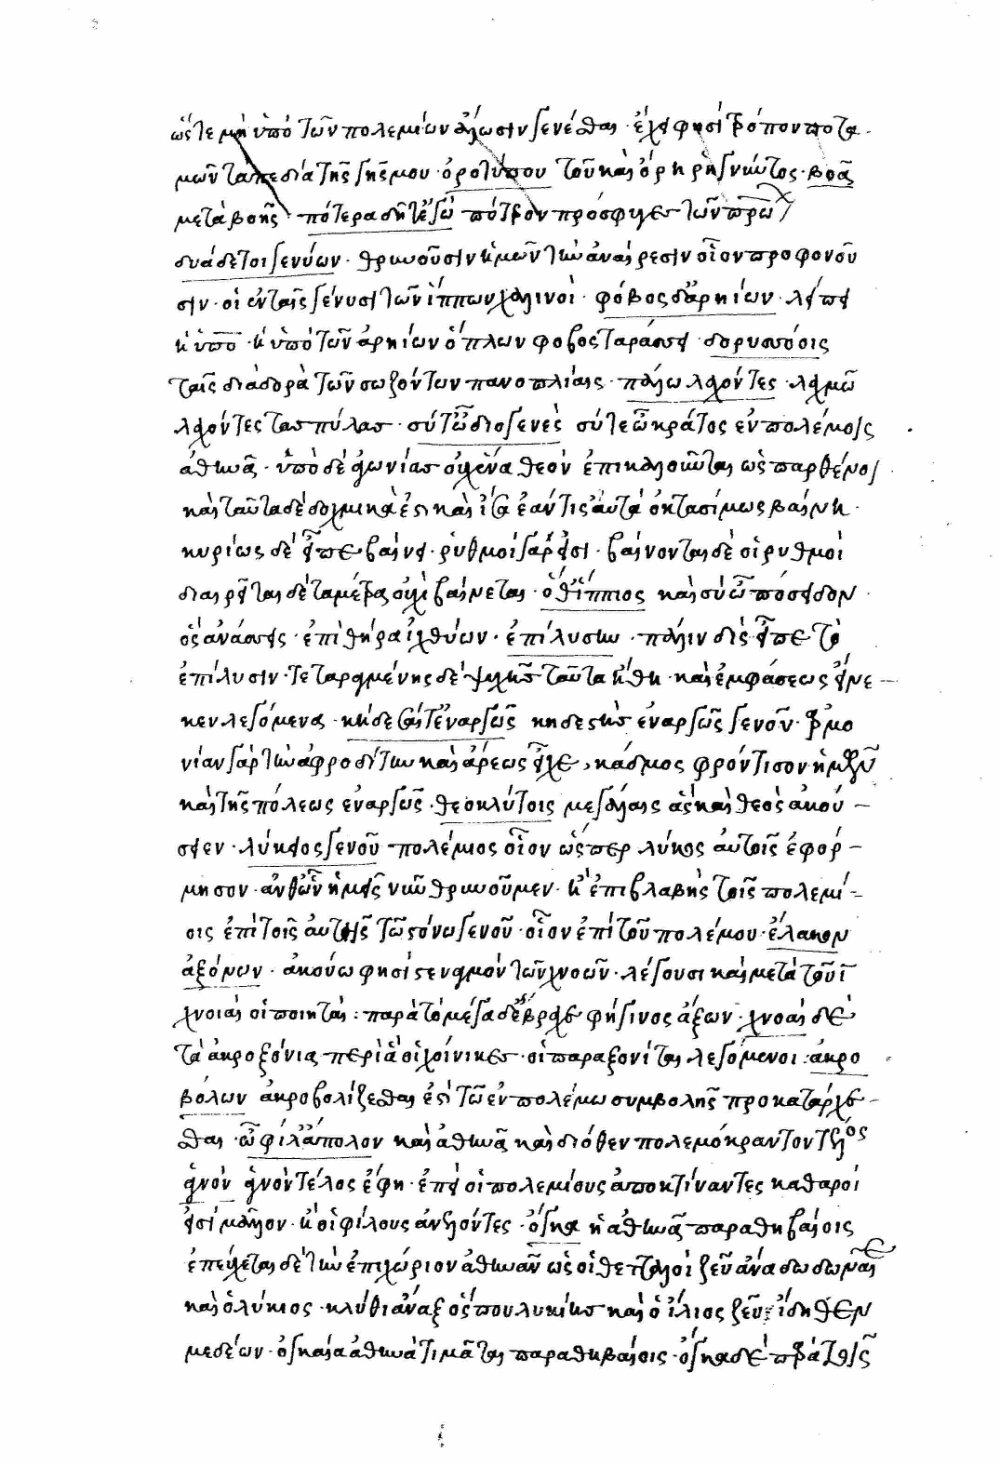 ὥστε μὴ ὑπὸ τῶν πολεμίων ἅλωσιν γενέσθαι · ἔχει φησὶ τρόπον ποτα
μῶν τὰ πεδία τῆς γῆς μου · ὀροτύπου τοῦ καὶ ὄρη ῥηγνύντος · βοᾷ
μετὰ βοῆς · πότερα δῆτ' ἐγὼ πότερον πρόσφυγες τῶν πρώ
διάδετοι γενύων · θρηνοῦσιν ἡμῶν τὴν ἀναίρεσιν οἷον προφωνοῦ
σιν · οἱ ἐν ταῖς γένυσι τῶν ἵππων χαλινοί · φόβος δ' ἀρηίων · λείπει
ἡ ὑπὸ · ἡ ὑπὸ τῶν ἀρηίων ὅπλων φόβος ταράσσει · δορυσσόις
ταῖς διὰ δορὰ τῶν σωζόντων πανοπλίαις · πάλῳ λαχόντες · λαχμῷ
λαχόντες τὰς πύλας · σύ τ' ὦ διογενὲς σύ τε ὦ κράτος ἐν πολέμοις
ἀθηνᾶ · ὑπὸ δὲ ἀγωνίας οὐχ ἕνα θεὸν ἐπικαλοῦνται ὡς παρθένοι
καὶ ταῦτα δὲ δοχμικά ἐστι καὶ ἴσα ἐάν τις αὐτὰ ὀκτασήμως βαίνῃ ·
κυρίως δὲ εἶπε βαίνει · ῥυθμοὶ γάρ εἰσι · βαίνονται δὲ οἱ ῥυθμοὶ
διαιρεῖται δὲ τὰ μέτρα οὐχὶ βαίνεται · ὅ θ' ἵππιος καὶ σὺ ὦ πόσειδον
ὃς ἀνάσσεις · ἐπὶ θήρᾳ ἰχθύων · ἐπίλυσιν · πάλιν δὶς εἶπε τὸ
ἐπίλυσιν · τεταραγμένης δὲ ψυχῆς ταῦτα ἤθη · καὶ ἐμφάσεως εἵνε
κεν λεγόμενα · κήδεσαί τ' ἐναργῶς κηδεστὴς ἐναργῶς γενοῦ · ἁρμο
νίαν γὰρ τὴν ἀφροδίτην καὶ ἄρεως εἶχε κάδμος φρόντισον ἡμῶν
καὶ τῆς πόλεως ἐναργῶς · θεοκλύτοις μεγάλαις ἃς καὶ θεὸς ἀκού
σειεν · λύκειος γενοῦ πολέμιος οἷον ὥσπερ λύκος αὐτοῖς ἐφόρ
μησον · ἀνθ' ὧν ἡμεῖς νῦν θρηνοῦμεν · ἢ ἐπιβλαβὴς τοῖς πολεμί
οις ἐπὶ τοῖς αὐτῆς τῷ στόνῳ γενοῦ · οἷον ἐπὶ τοῦ πολέμου · ἔλακον
ἀξόνων · ἀκούω φησὶ στεναγμὸν τῶν χνοῶν · λέγουσι καὶ μετὰ τοῦ ι
χνοίαι οἱ ποιηταί : παρὰ τὸ μέγα δ' ἔβραχε φήγινος ἄξων · χνοαὶ δὲ
τὰ ἀκροξόνια περὶ ἃ οἱ χοίνικες · οἱ παραξονῖται λεγόμενοι · ἀκρο
βόλων ἀκροβολίζεσθαι ἐστὶ τὸ ἐν πολέμῳ συμβολῆς προκατάρχε
σθαι · ὦ φίλ' ἄπολλον καὶ ἀθηνᾶ καὶ διόθεν πολεμόκραντον τέλος
ἁγνὸν ἁγνὸν τέλος ἔφη · ἐπεὶ οἱ πολεμίους ἀποκτείναντες καθαροί
εἰσι μᾶλλον · ἢ οἱ φίλους ἀνελόντες · ὄγκα ἡ ἀθηνᾶ παρὰ θηβαίοις
ἐπεύχεται δὲ τὴν ἐπιχώριον ἀθηνᾶν ὡς οἱ θετταλοὶ ζεῦ ἄνα δωδωναῖε
καὶ ὁ λύκιος · κλῦθι ἄναξ ὅς που λυκίης καὶ ὁ ἴλιος ζεῦ ἴδηθεν
μεδέων · ὀγκαία ἀθηνᾶ τιμᾶται παρὰ θηβαίοις · ὄγκα δὲ πρὰ τοῖς